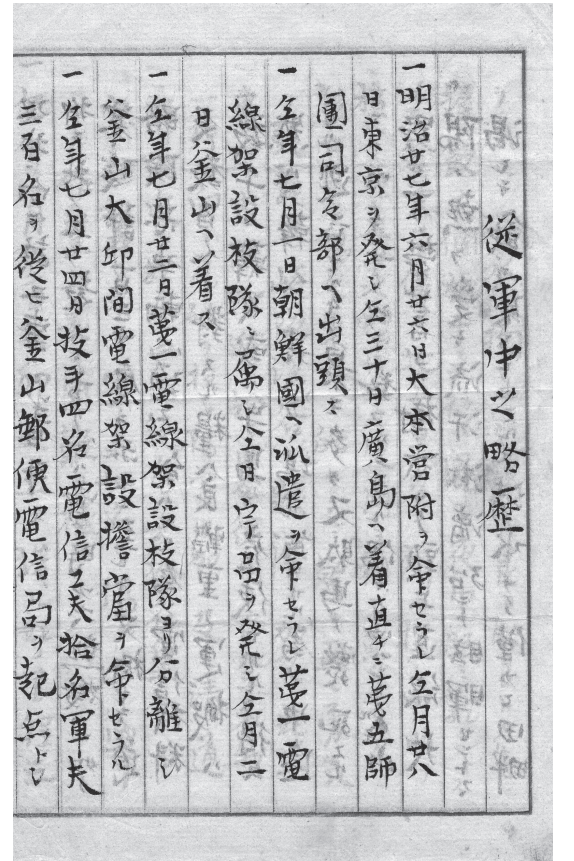 従軍中之略歴
一明治廿七年六月廿六日大本営附ヲ命セラレ仝月廿八
日東京ヲ発シ仝三十日廣島ヘ着直チニ第五師
團司令部ヘ出頭ス
一仝年七月一日朝鮮國ヘ派遣ヲ命セラレ第一電
線架設枝隊ニ属シ仝日宇品ヲ発シ仝月二
日釜山ヘ着ス
一仝年七月廿二日第一電線架設枝隊ヨリ分離シ
釜山大邱間電線架設擔當ヲ命セラル
一仝年七月廿四日技手四名電信工夫拾名軍夫
三百名ヲ従ヒ釜山郵便電信局ヲ起点トシ